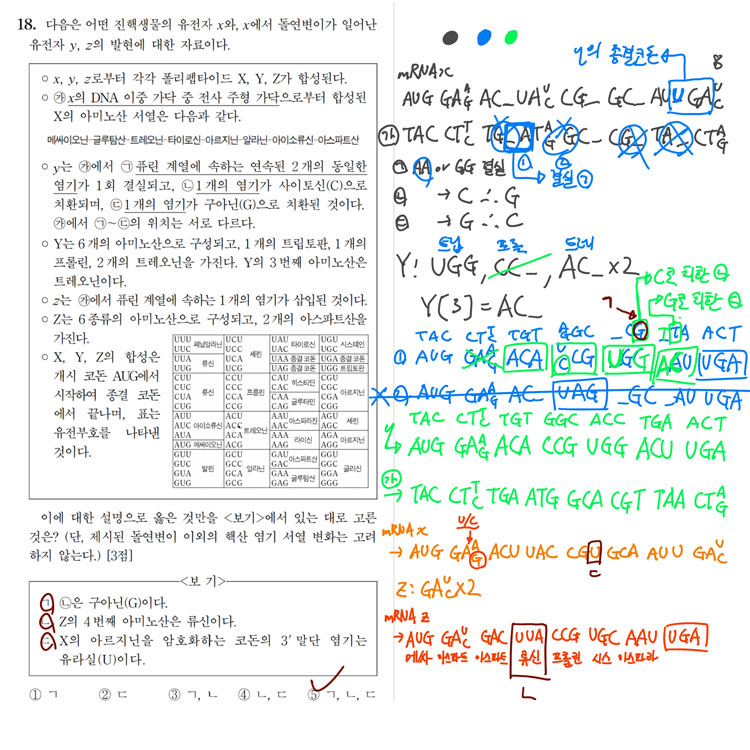 18. 다음은 어떤 진핵생물의 유전자 x와, x에서 돌연변이가 일어난
유전자 y, z의 발현에 대한 자료이다.
○ x, y, z로부터 각각 폴리펩타이드 X, Y, Z가 합성된다.
○ ㉮x의 DNA 이중 가닥 중 전사 주형 가닥으로부터 합성된
X의 아미노산 서열은 다음과 같다.
메싸이오닌-글루탐산-트레오닌-타이로신-아르지닌-알라닌-아이소류신-아스파트산
○ y는 ㉮에서 ㉠퓨린 계열에 속하는 연속된 2개의 동일한
염기가 1회 결실되고, ㉡1개의 염기가 사이토신(C)으로
치환되며, ㉢1개의 염기가 구아닌(G)으로 치환된 것이다.
㉮에서 ㉠~㉢의 위치는 서로 다르다.
○ Y는 6개의 아미노산으로 구성되고, 1개의 트립토판, 1개의
프롤린, 2개의 트레오닌을 가진다. Y의 3번째 아미노산은
트레오닌이다.
○ z는 ㉮에서 퓨린 계열에 속하는 1개의 염기가 삽입된 것이다.
○ Z는 6종류의 아미노산으로 구성되고, 2개의 아스파트산을
가진다.
○ X, Y, Z의 합성은
개시 코돈 AUG에서
시작하여 종결 코돈
에서 끝나며, 표는
유전부호를 나타낸
것이다.
UUU UUC 페닐알라닌 UCU UCC UCA UCG 세린 UAU UAC 타이로신 UGU UGC 시스테인
UUA UUG 류신 UAA 종결 코돈 UAG 종결 코돈 UGA 종결 코돈 UGG 트립토판
CUU CUC CUA CUG 류신 CCU CCC CCA CCG 프롤린 CAU CAC 히스티딘 CAA CAG 글루타민 CGU CGC CGA CGG 아르지닌
AUU AUC AUA 아이소류신 AUG 메싸이오닌 ACU ACC ACA ACG 트레오닌 AAU AAC 아스파라진 AAA AAG 라이신 AGU AGC 세린 AGA AGG 아르지닌
GUU GUC GUA GUG 발린 GCU GCC GCA GCG 알라닌 GAU GAC 아스파트산 GAA GAG 글루탐산 GGU GGC GGA GGG 글리신
이에 대한 설명으로 옳은 것만을 <보기>에서 있는 대로 고른
것은? (단, 제시된 돌연변이 이외의 핵산 염기 서열 변화는 고려
하지 않는다.) [3점]
<보 기>
ㄱ. ㉡은 구아닌(G)이다.
ㄴ. Z의 4번째 아미노산은 류신이다.
ㄷ. X의 아르지닌을 암호화하는 코돈의 3′ 말단 염기는
유라실(U)이다.
① ㄱ ② ㄷ ③ ㄱ, ㄴ ④ ㄴ, ㄷ ⑤ ㄱ, ㄴ, ㄷ
y의 종결코돈 8
mRNA x
AUG GA A/G AC_ UA U/C CG_ GC_ AU UGA U/C
㉮ TAC CT T/C TG_ AT A/G GC_ CG_ TA_ CT A/G
㉠ AA or GG 결실 ① ② 결실 ㉠
㉡ → C ∴ G
㉢ → G ∴ C
트립 프롤 트레
Y: UGG, CC_, AC_ ×2
Y[3] = AC_
C로 치환 ㉡
G로 치환 ㉢
y TAC CT T/C TGT GGC ACC TGA ACT
AUG GA A/G ACA CCG UGG ACU UGA
㉮ → TAC CT T/C TGA ATG GCA CGT TAA CT A/G
U/C
mRNA x
→ AUG GA A/G ACU UAC CGU GCA AUU GA U/C
ㄷ
z: GA U/C ×2
mRNA z
→ AUG GA U/C GAC UUA CCG UGC AAU UGA
메싸 아스파트 아스파트 류신 프롤린 시스 아스파라
ㄴ